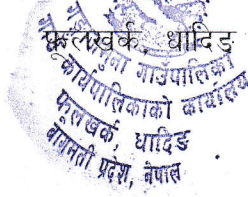 फूलखर्क, धादिङ
गाउँपालिका
कार्यपालिकाको कार्यालय
फूलखर्क, धादिङ
बागमती प्रदेश, नेपाल